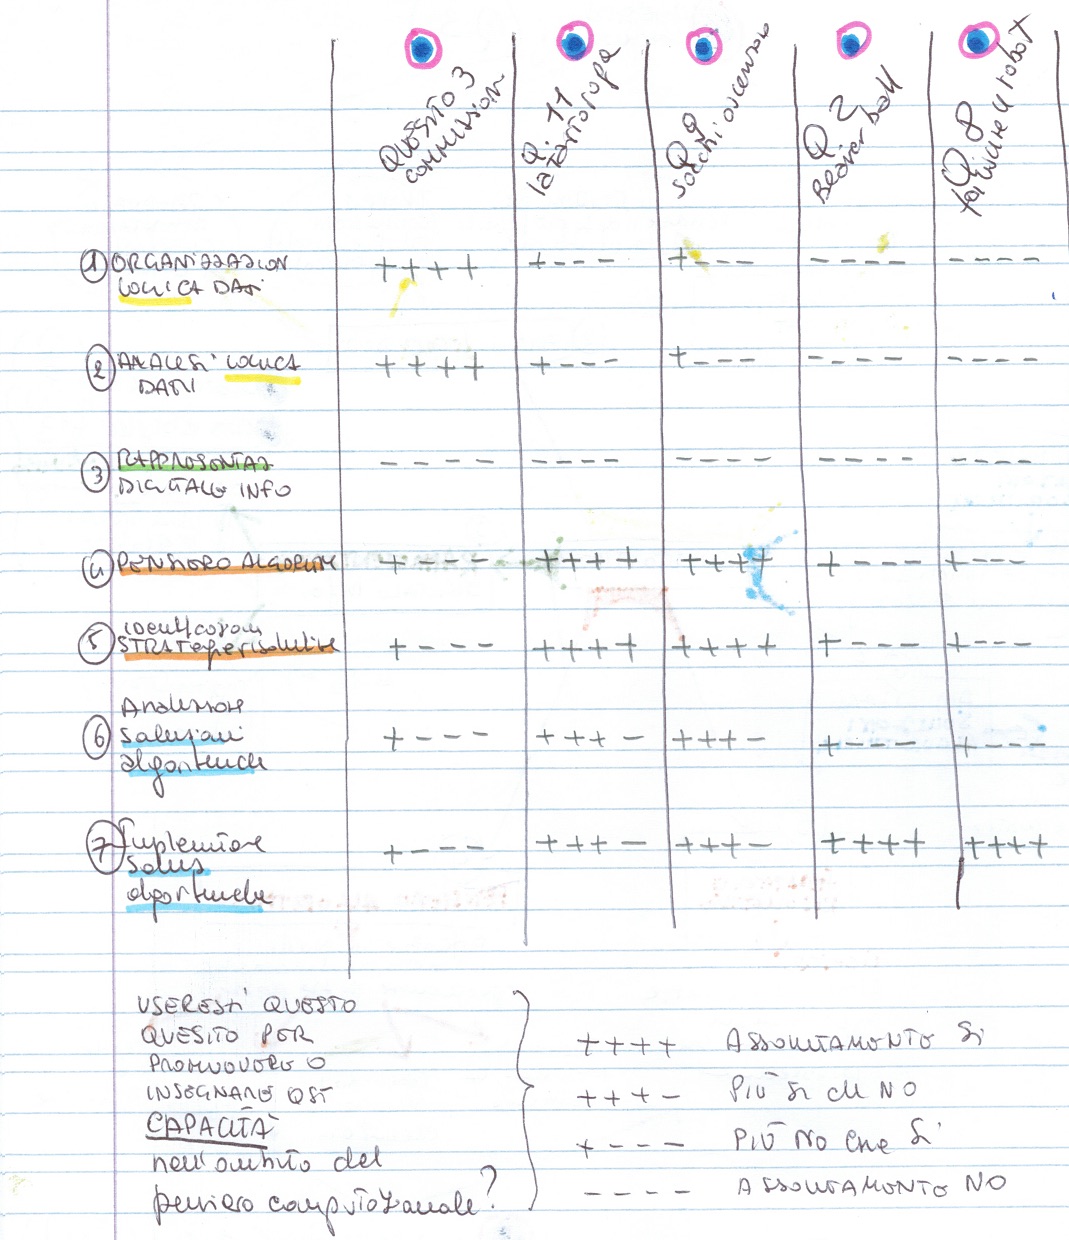 QUESITO 3
commission
Q. 11
la tartaruga
Q 9
Q 2
Beaver ball
Q 8
robot
① ORGANIZZAZION
LOGICA DATI
++++
+---
+---
----
----
② ANALISI LOGICA
DATI
++++
+---
+---
----
----
③ RAPPRESENTAZ
DIGITALE INFO
----
----
----
----
----
④ PENSIERO ALGORITM
+---
++++
++++
+---
+---
⑤
STRATegie risolutive
+---
++++
++++
+---
+---
⑥ Analizzare
soluzioni
algoritmiche
+---
+++-
+++-
+---
+---
⑦ Implemntare
soluz
algoritmiche
+---
+++-
+++-
++++
++++
USERESTI QUESTO
QUESITO PER
PROMUOVERE O
INSEGNARE QST
CAPACITÀ
nell'ambito del
pensiero computazionale?
++++ ASSOLUTAMENTE SI
+++- PIÙ SI che NO
+--- PIÙ NO che SI
---- ASSOLUTAMENTE NO